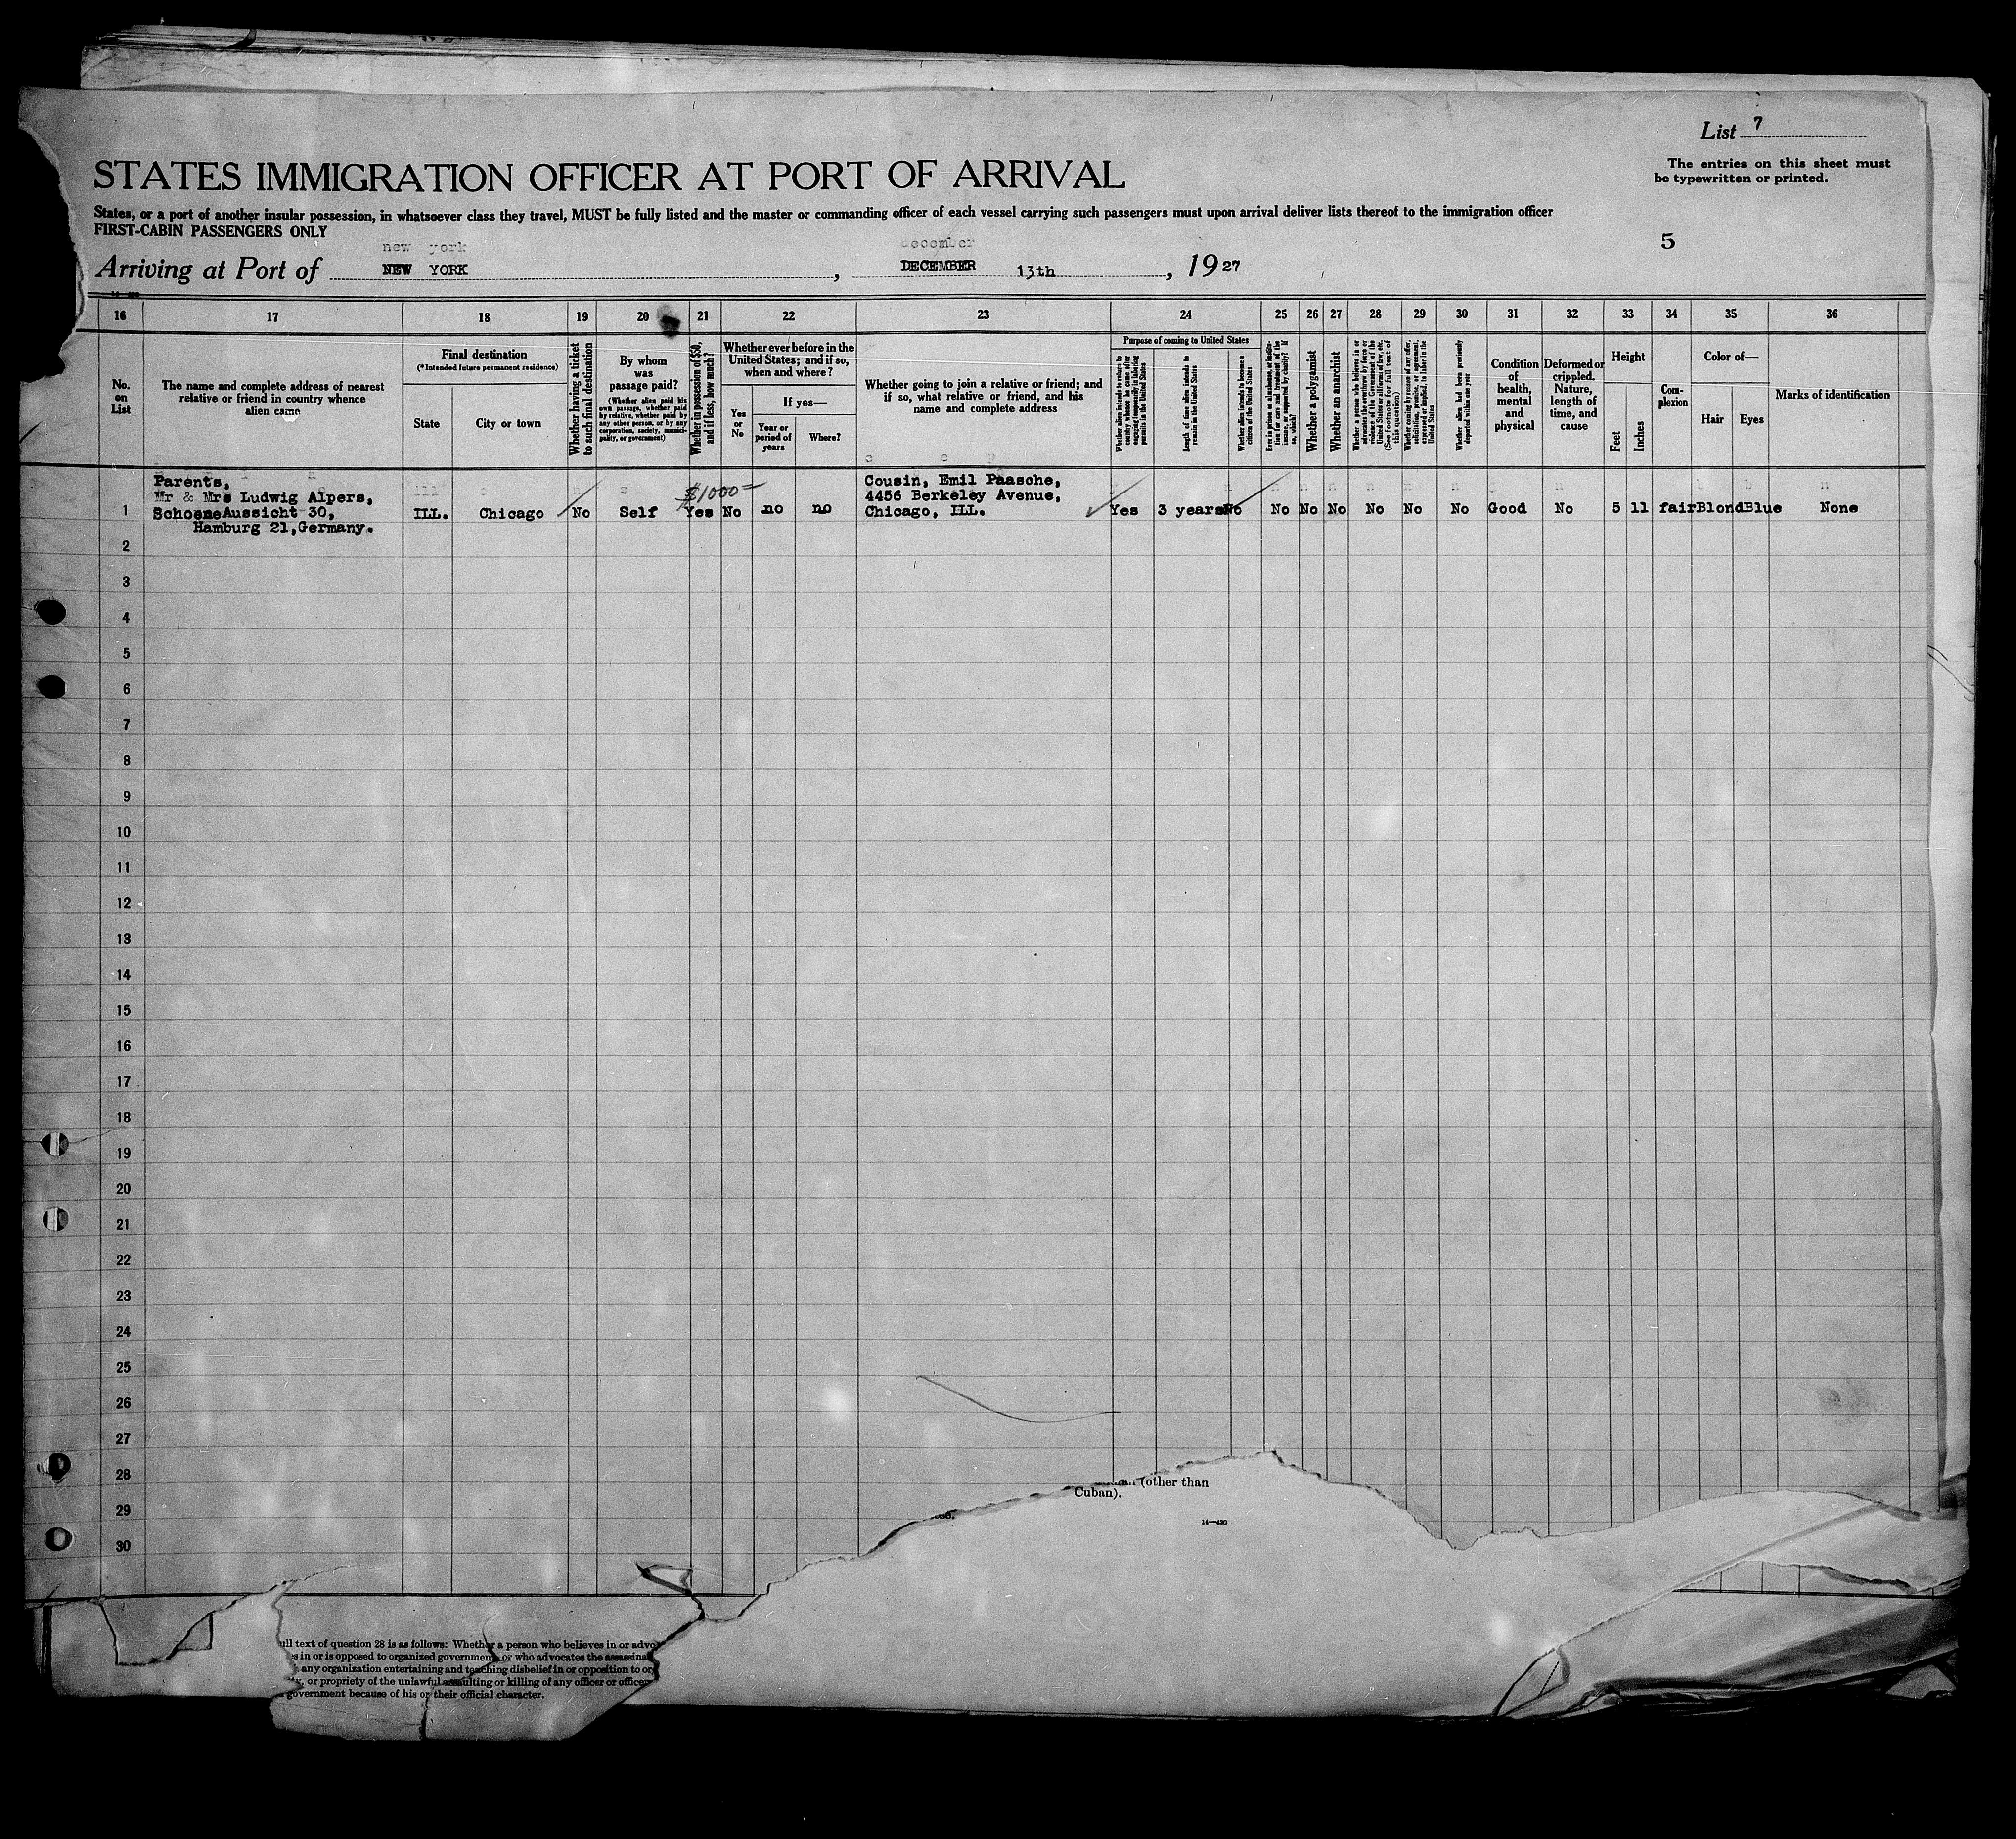 List 7
The entries on this sheet must
be typewritten or printed.
STATES IMMIGRATION OFFICER AT PORT OF ARRIVAL
States, or a port of another insular possession, in whatsoever class they travel, MUST be fully listed and the master or commanding officer of each vessel carrying such passengers must upon arrival deliver lists thereof to the immigration officer
FIRST-CABIN PASSENGERS ONLY
5
new york december
Arriving at Port of NEW YORK, DECEMBER 13th, 1927
16 17 18 19 20 21 22 23 24 25 26 27 28 29 30 31 32 33 34 35 36
No.
on
List
The name and complete address of nearest
relative or friend in country whence
alien came
Final destination
(*Intended future permanent residence)
State
City or town
Whether having a ticket
to such final destination
By whom
was
passage paid?
(Whether alien paid his
own passage, whether paid
by relative, whether paid by
any other person, or by any
corporation, society, munici-
pality, or government)
Whether in possession of $50,
and if less, how much?
Whether ever before in the
United States; and if so,
when and where?
Yes
or
No
If yes—
Year or
period of
years
Where?
Whether going to join a relative or friend; and
if so, what relative or friend, and his
name and complete address
Purpose of coming to United States
Whether alien intends to return to
country whence he came after
engaging temporarily in laboring
pursuits in the United States
Length of time alien intends to
remain in the United States
Whether alien intends to become a
citizen of the United States
Ever in prison or almshouse, or institu-
tion for care and treatment of the
insane, or supported by charity? If
so, which?
Whether a polygamist
Whether an anarchist
Whether a person who believes in or
advocates the overthrow by force or
violence of the Government of the
United States or all forms of law, etc.
(See footnote for full text of
this question)
Whether coming by reason of any offer,
solicitation, promise, or agreement,
expressed or implied, to labor in the
United States
Whether alien had been previously
deported within one year
Condition
of
health,
mental
and
physical
Deformed or
crippled.
Nature,
length of
time, and
cause
Height
Feet
Inches
Com-
plexion
Color of—
Hair
Eyes
Marks of identification
1
Parents,
Mr & Mrs Ludwig Alpers,
Schoene Aussicht 30,
Hamburg 21, Germany.
ILL. Chicago No Self
$1000=
Yes No no no
Cousin, Emil Paasche,
4456 Berkeley Avenue,
Chicago, ILL.
Yes 3 years No No No No No No No Good No 5 11 fair Blond Blue None
2
3
4
5
6
7
8
9
10
11
12
13
14
15
16
17
18
19
20
21
22
23
24
25
26
27
28
29
30
(other than
Cuban).
14—430
ull text of question 28 is as follows: Whether a person who believes in or advo
s in or is opposed to organized government, or who advocates the assassinat
any organization entertaining and teaching disbelief in or opposition to or
or propriety of the unlawful assaulting or killing of any officer or officer
government because of his or their official character.